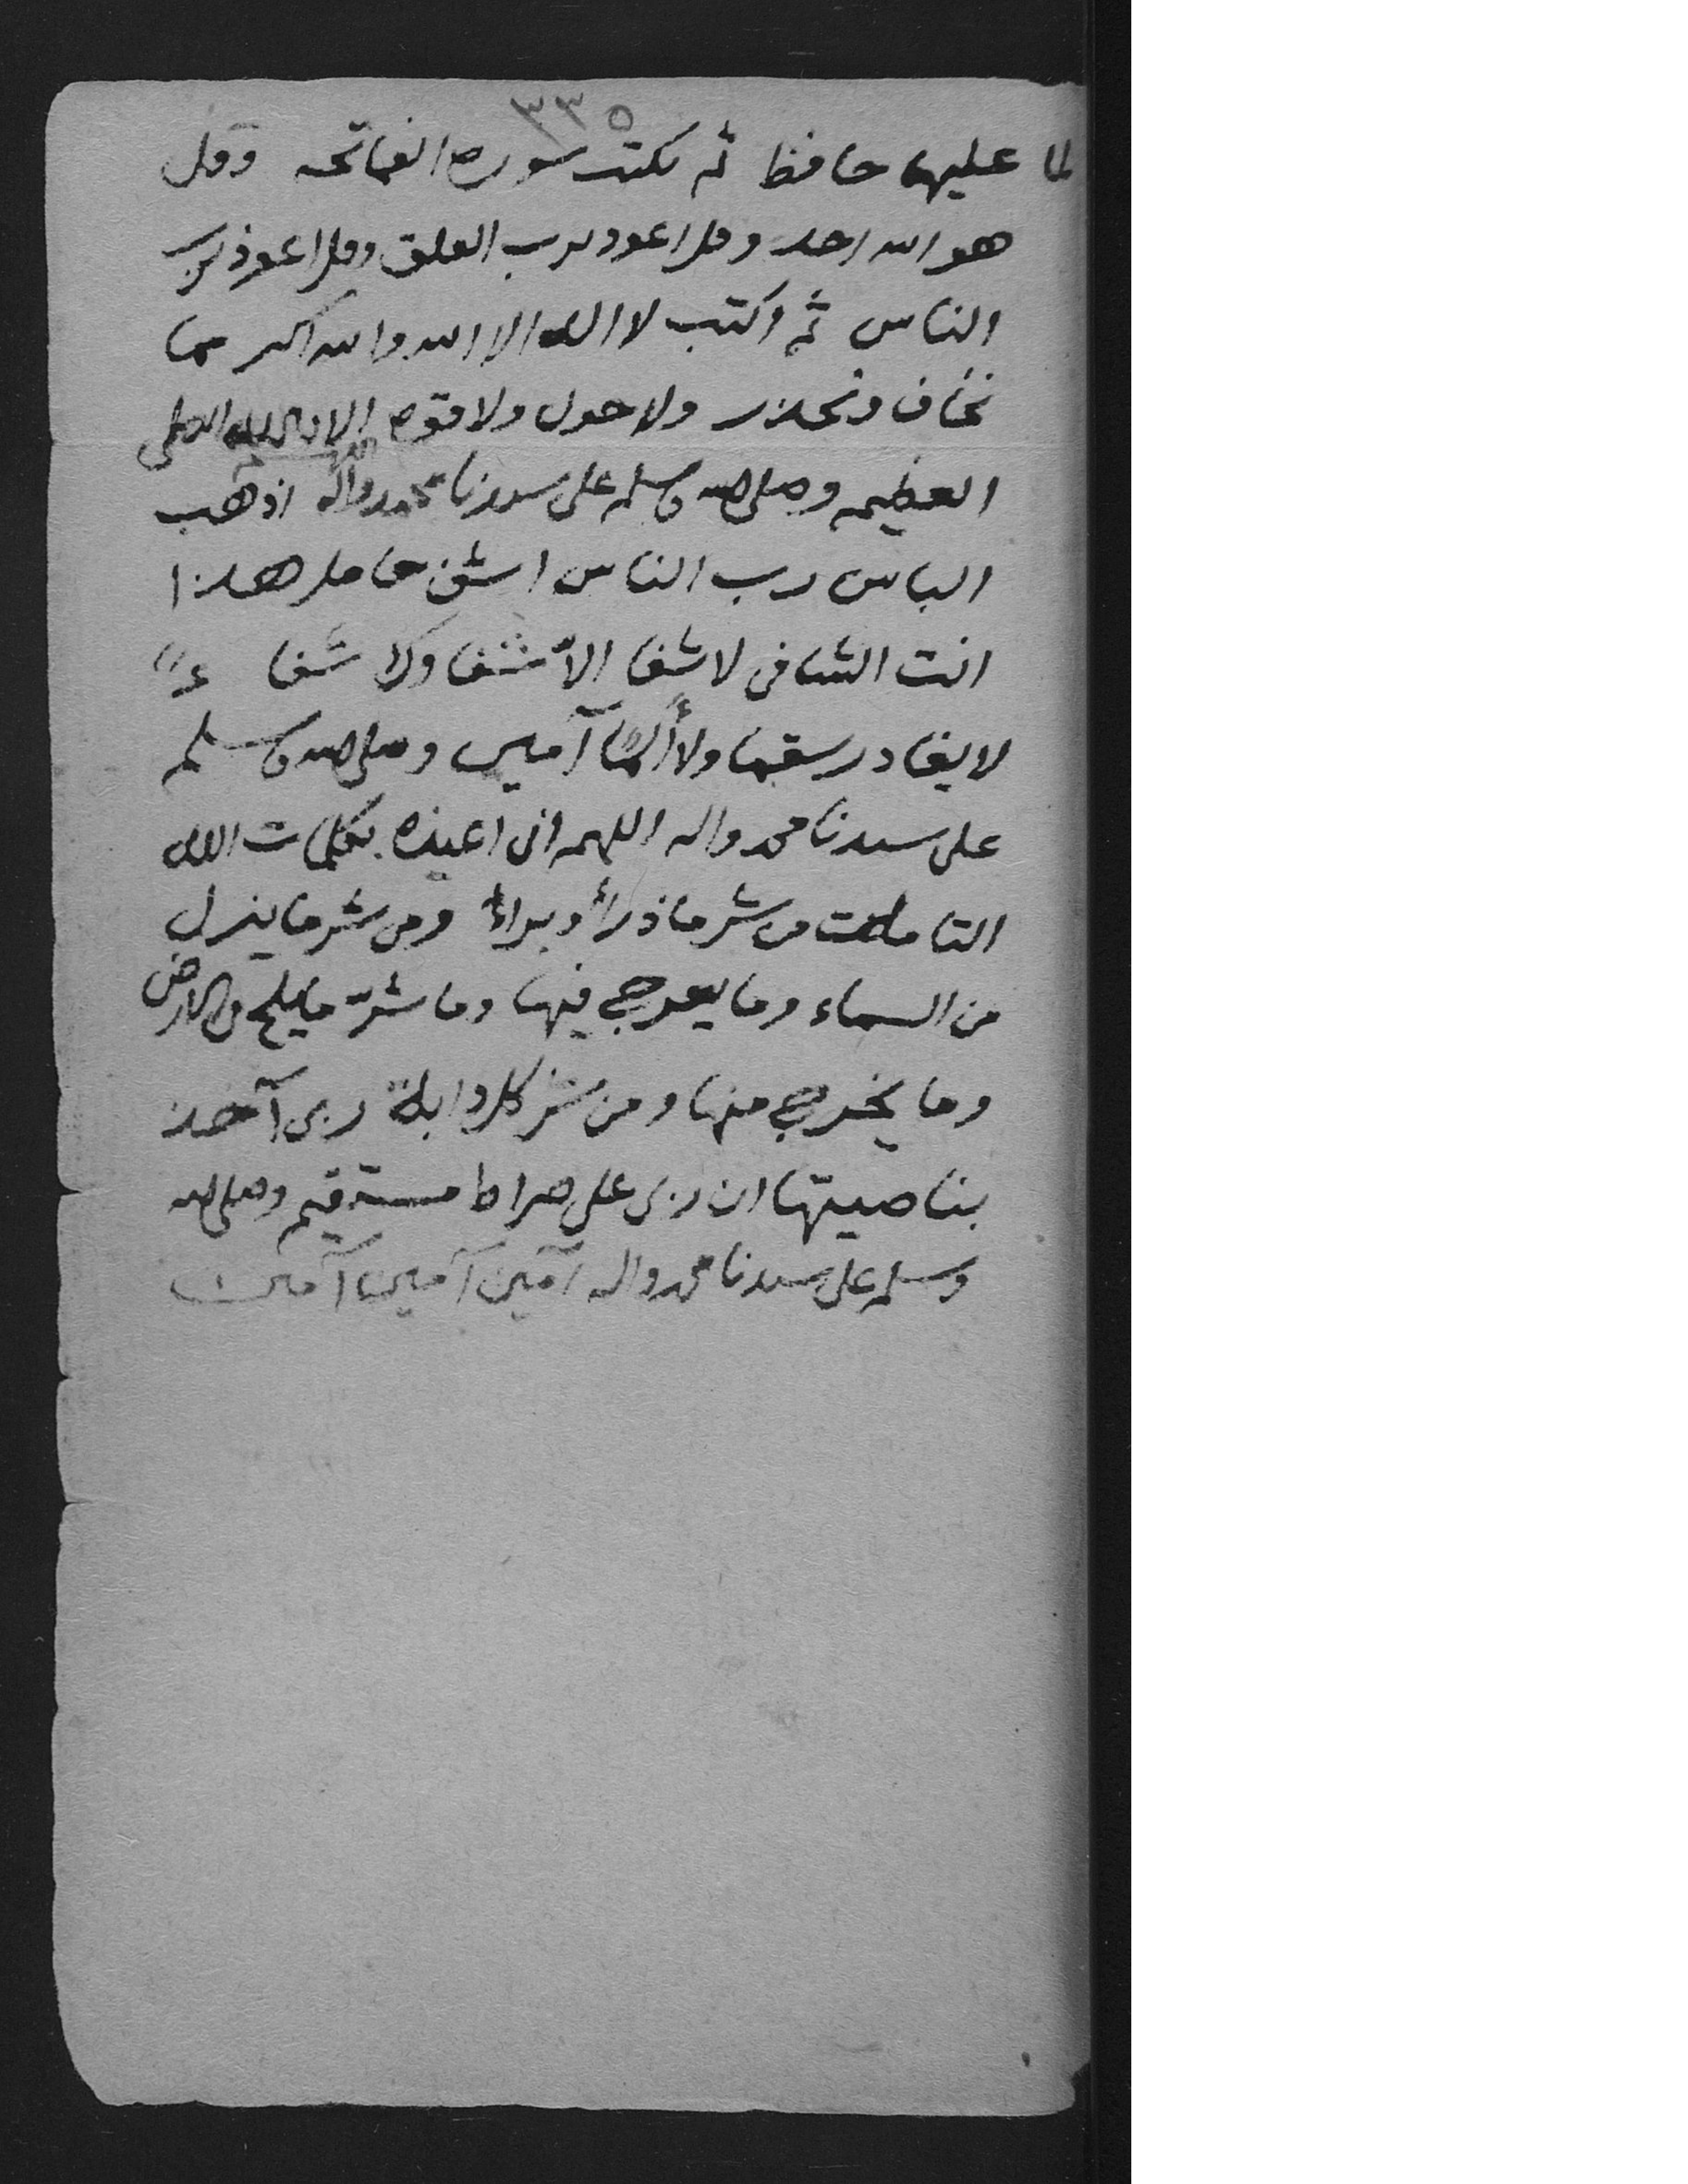 ٣٣٥
لما عليها حافظ ثم تكتب سورة الفاتحه وقل
هو الله احد وقل اعوذ برب الفلق وقل اعوذ برب
الناس ثم اكتب لا اله الا الله والله اكبر مما
نخاف ونحذر ولا حول ولا قوة الا بالله العلي
العظيم وصلى الله وسلم على سيدنا محمد واله اذهب
الباس رب الناس اشف حامل هذا
انت الشافي لا شفا الا شفاوك شفاءً
لا يغادر سقما ولا ألمًا آمين وصلى الله وسلم
على سيدنا محمد واله اللهم اني اعيذه بكلمات الله
التامات من شر ما ذرأ وبرأ ومن شر ما ينزل
من السماء وما يعرج فيها وما شرّ ما يلج في الارض
وما يخرج منها ومن شر كل دابة ربي آخذ
بناصيتها ان ربي على صراط مستقيم وصلى الله
وسلم على سيدنا محمد واله آمين آمين آمين